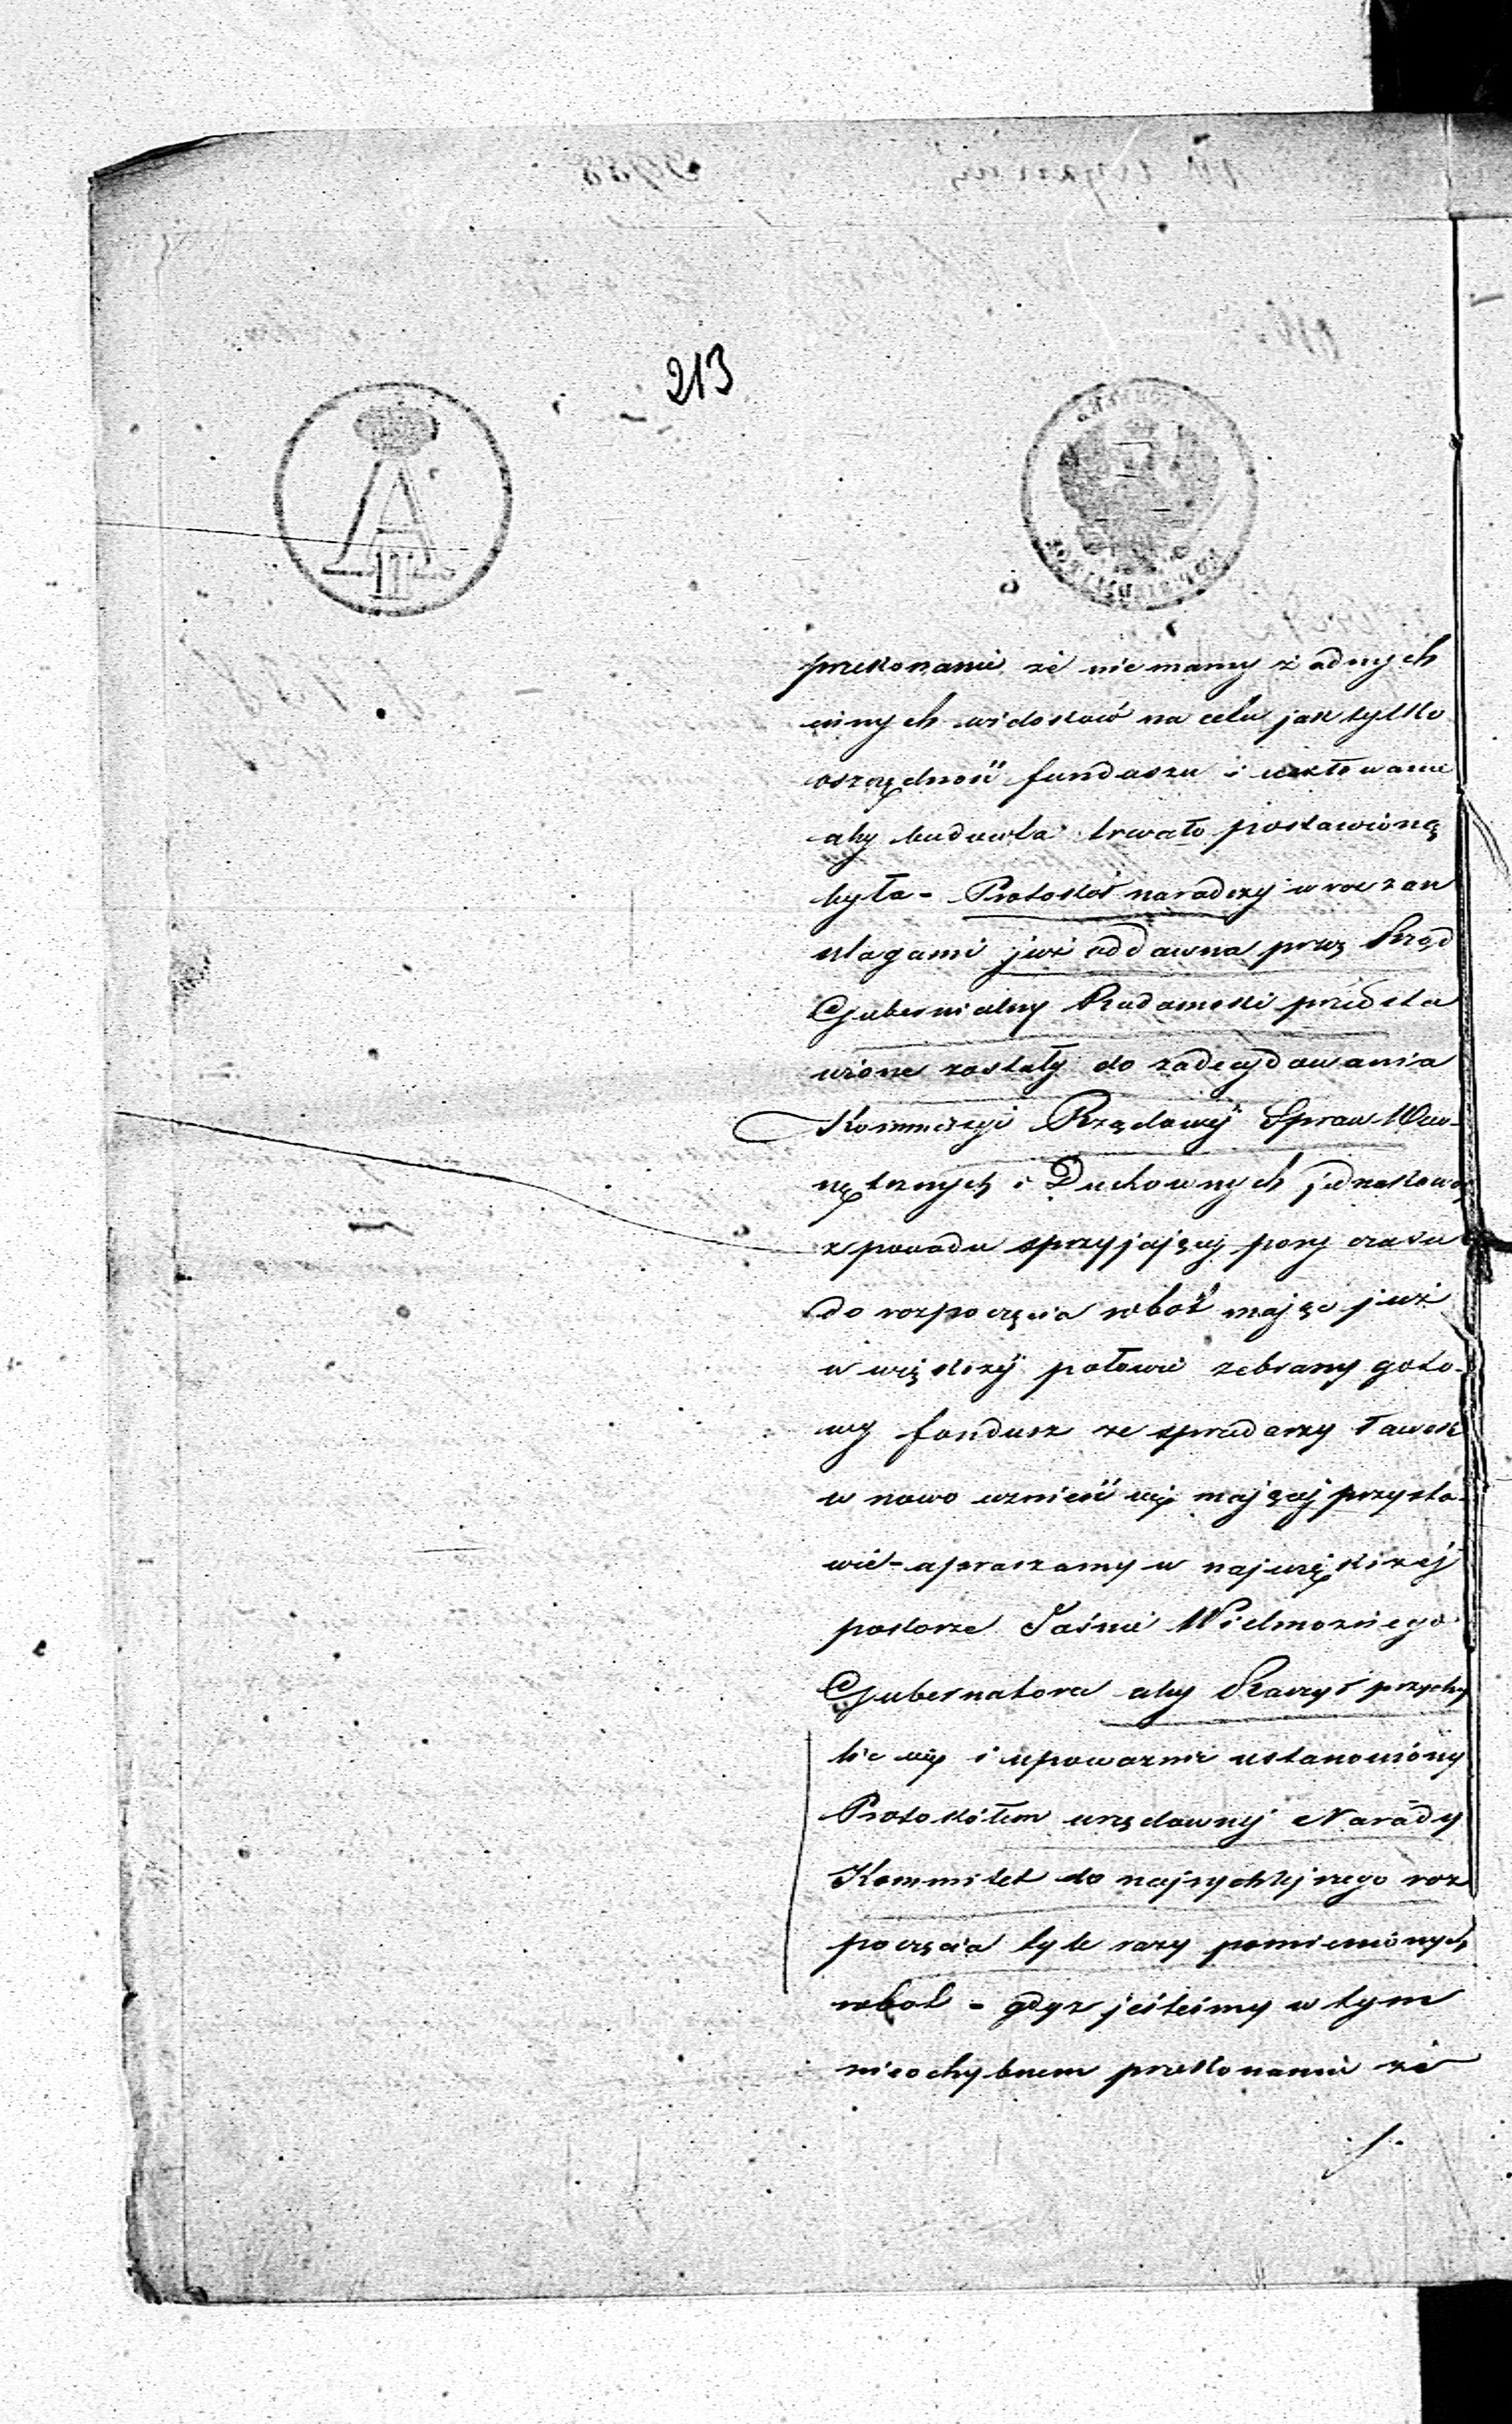 213
A
II
przekonanie, że nie mamy żadnych
innych widoków na celu jak tylko
oszczędność funduszu i
aby budowla trwało postawioną
była - Protokół naradczy wraz z an
nlagami już oddawna przez Rząd
Gubernialny Radomski przedsta
wione zostały do zadecydowania
Kommissyi Rządowéj Spraw Wew-
nętrznych i Duchownych jednakowoż
z powodu sprzyjającej pory czasu
do rozpoczęcia robót mając już
w większéj połowie zebrany goto-
wy fondusz ze sprzedarzy ławek
w nowo wznieść się mającej przysta-
wie - upraszamy w największéj
pokorze Jaśnie Wielmożnego
Gubernatora aby Raczył przychy
lić się i upoważnić ustanowióny
Protokółem urzędownéj Narady
Kommitet do najrychlejszego roz
poczęcia tyle razy pomienionych
robot - gdyż jesteśmy w tym
nieochybnem przekonaniu że
./.